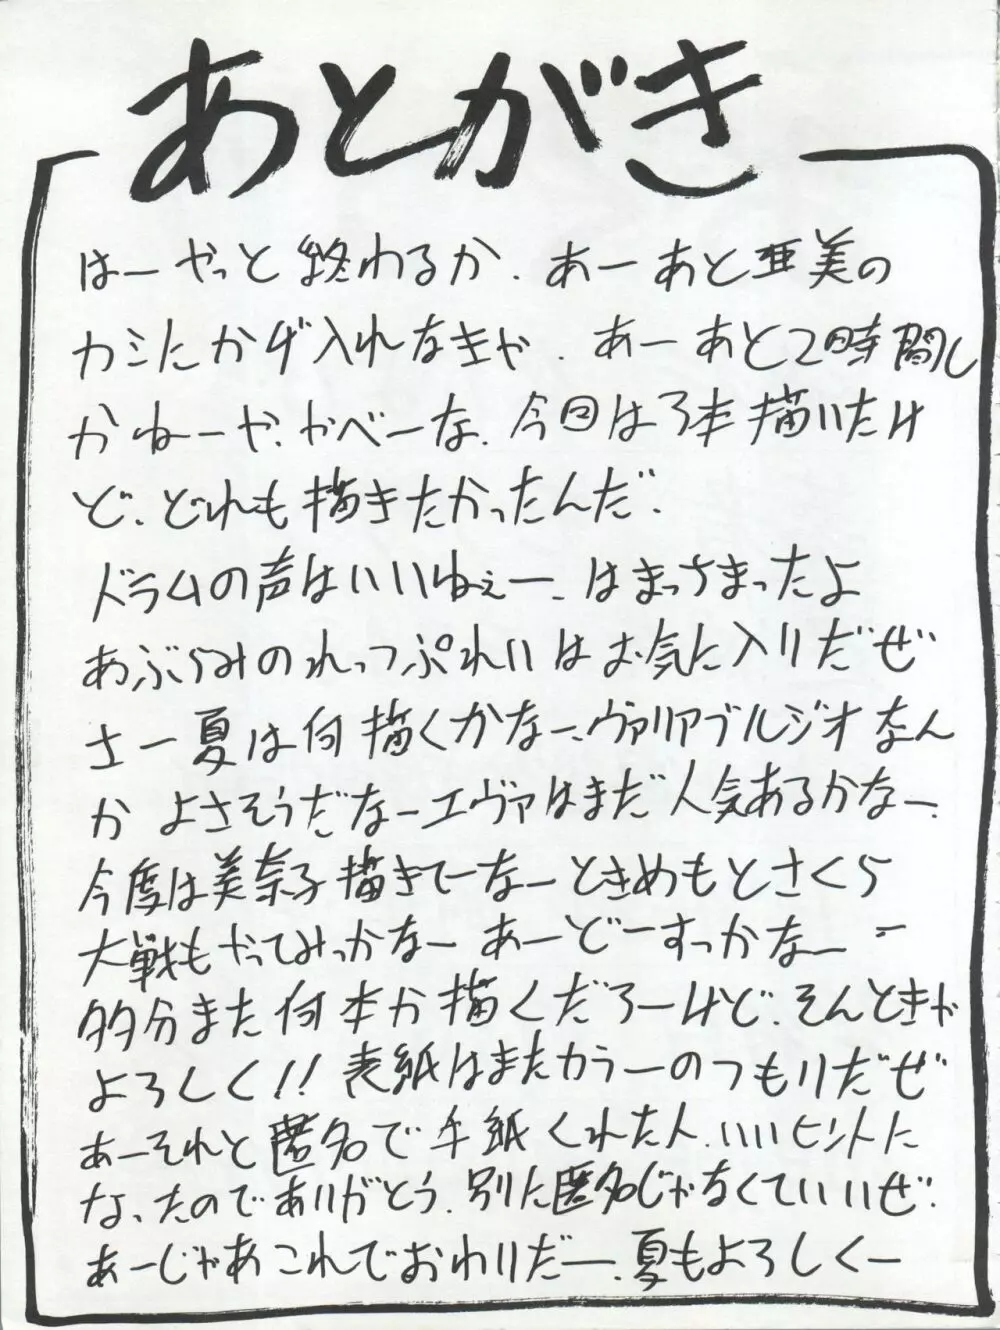 あとがき
はーやっと終わるか、あーあと亜美の
カシにかげ入れなきゃ、あーあと2時間し
かねーや、やべーな、今回は3本描いたけ
ど、どれも描きたかったんだ、
ドラムの声はいいねぇー、はまっさまったよ
あぶらみのれっつぷれいはお気に入りだぜ
さー夏は何描くかなー、ヴァリアブルジオなん
か よさそうだなーエヴァはまだ人気あるかなー、
今度は美奈子描きてーなーときめもとさくら
大戦もやってみっかなー あーどーすっかなーー
多分また何本か描くだろーけど、そんときゃ
よろしく!! 表紙はまたカラーのつもりだぜ
あーそれと匿名で手紙くれた人、いいヒントに
なったのでありがとう、別に匿名じゃなくていいぜ、
あーじゃあこれでおわりだー、夏もよろしくー